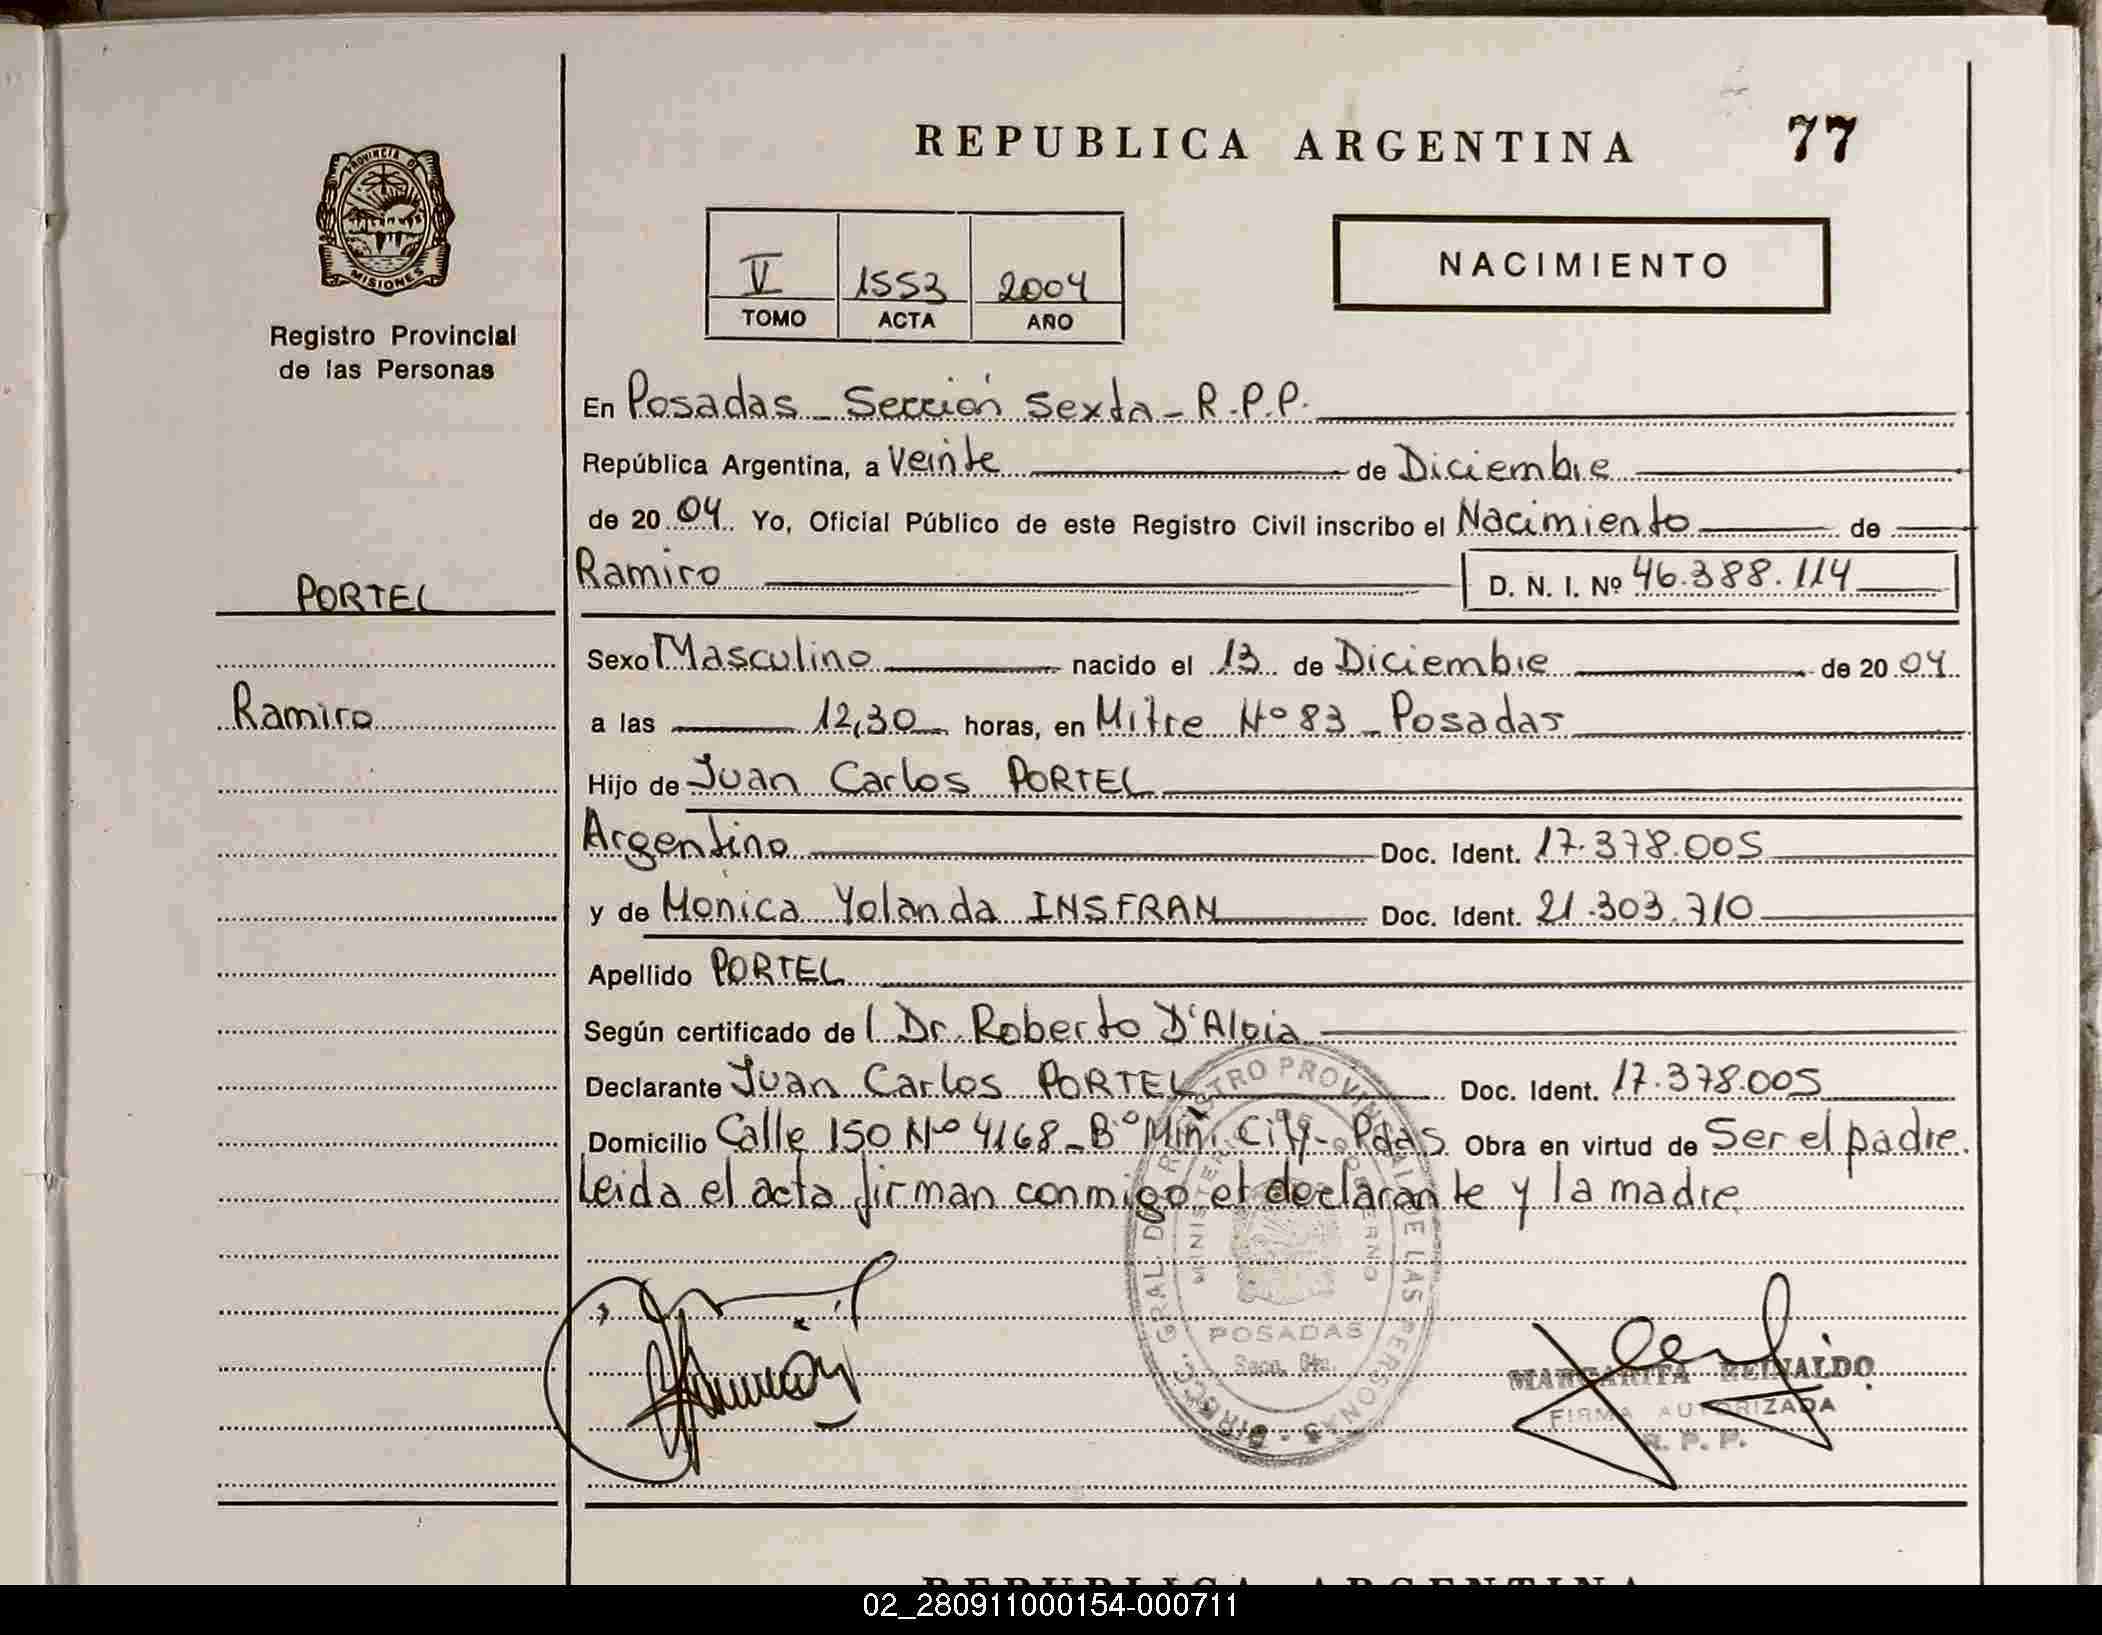 REPUBLICA ARGENTINA 77
PROVINCIA D MISIONES
Registro Provincial
de las Personas
V 1553 2004
TOMO ACTA AÑO
NACIMIENTO
En Posadas - Sección Sexta - R.P.P.
República Argentina, a Veinte de Diciembre
de 20 04 Yo, Oficial Público de este Registro Civil inscribo el Nacimiento de
PORTEL
Ramiro D. N. I. Nº 46.388.114
Sexo Masculino nacido el 13 de Diciembre de 20 04
Ramiro
a las 12,30 horas, en Mitre Nº 83 - Posadas
Hijo de Juan Carlos PORTEL
Argentino Doc. Ident. 17.378.005
y de Mónica Yolanda INSFRAN Doc. Ident. 21.303.710
Apellido PORTEL
Según certificado de l Dr. Roberto D'Aloia
Declarante Juan Carlos PORTEL Doc. Ident. 17.378.005
Domicilio Calle 150 Nº 4168 - Bº Mini City - Pdas Obra en virtud de Ser el padre.
Leida el acta firman conmigo el declarante y la madre
DIRECC. GRAL. DE REGISTRO PROVINCIAL DE LAS PERSONAS
MINISTERIO DE GOBIERNO
POSADAS
Secc. 6ta.
MARGARITA REINALDO
FIRMA AUTORIZADA
R. P. P.
REPUBLICA ARGENTINA
02_280911000154-000711